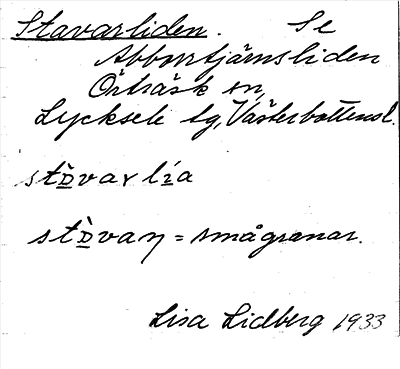 Stavarliden. Se
Abborrtjärnsliden
Örträsk sn,
Lycksele lg, Västerbottensl.
stɒ̀varlía
stɒ̀vaɳ = smågranar.
Lisa Lidberg 1933